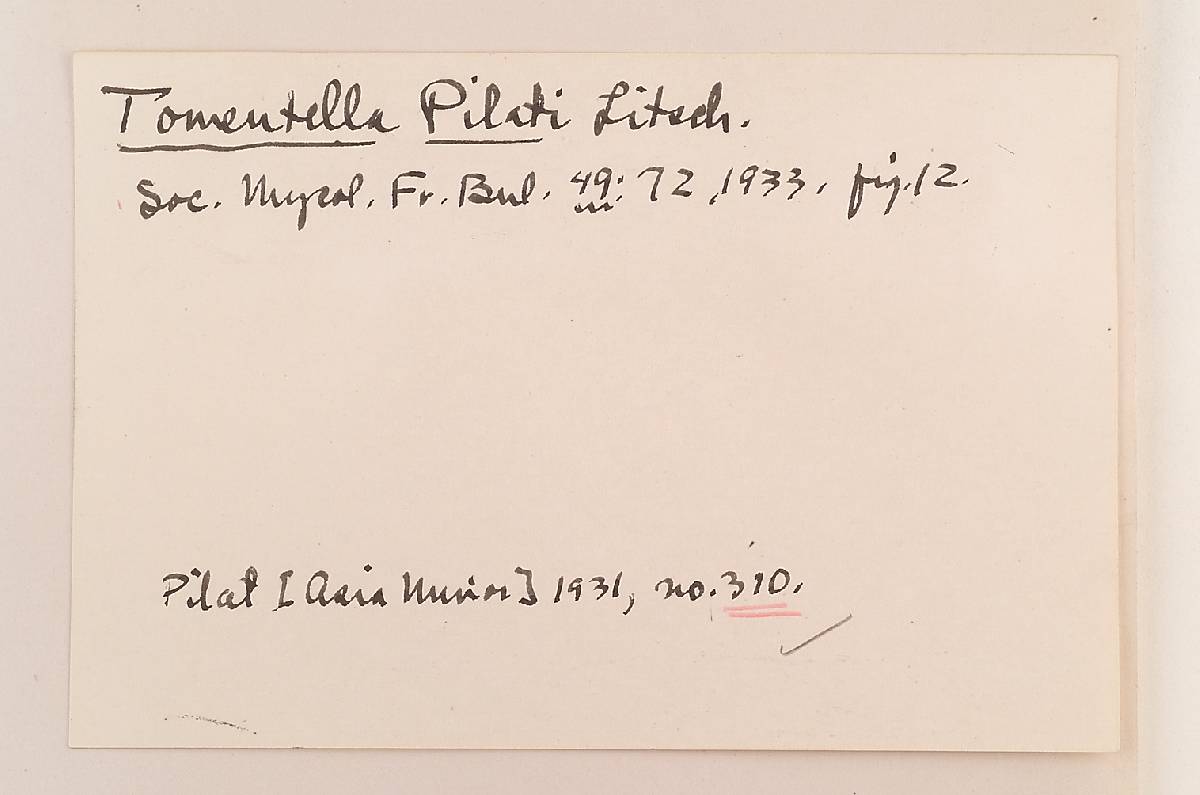 Tomentella Pilati Litsch.
Soc. Mycol. Fr. Bul. 49: 72, 1933. fig. 12.
Pilat [Asia Minor] 1931, no. 310.